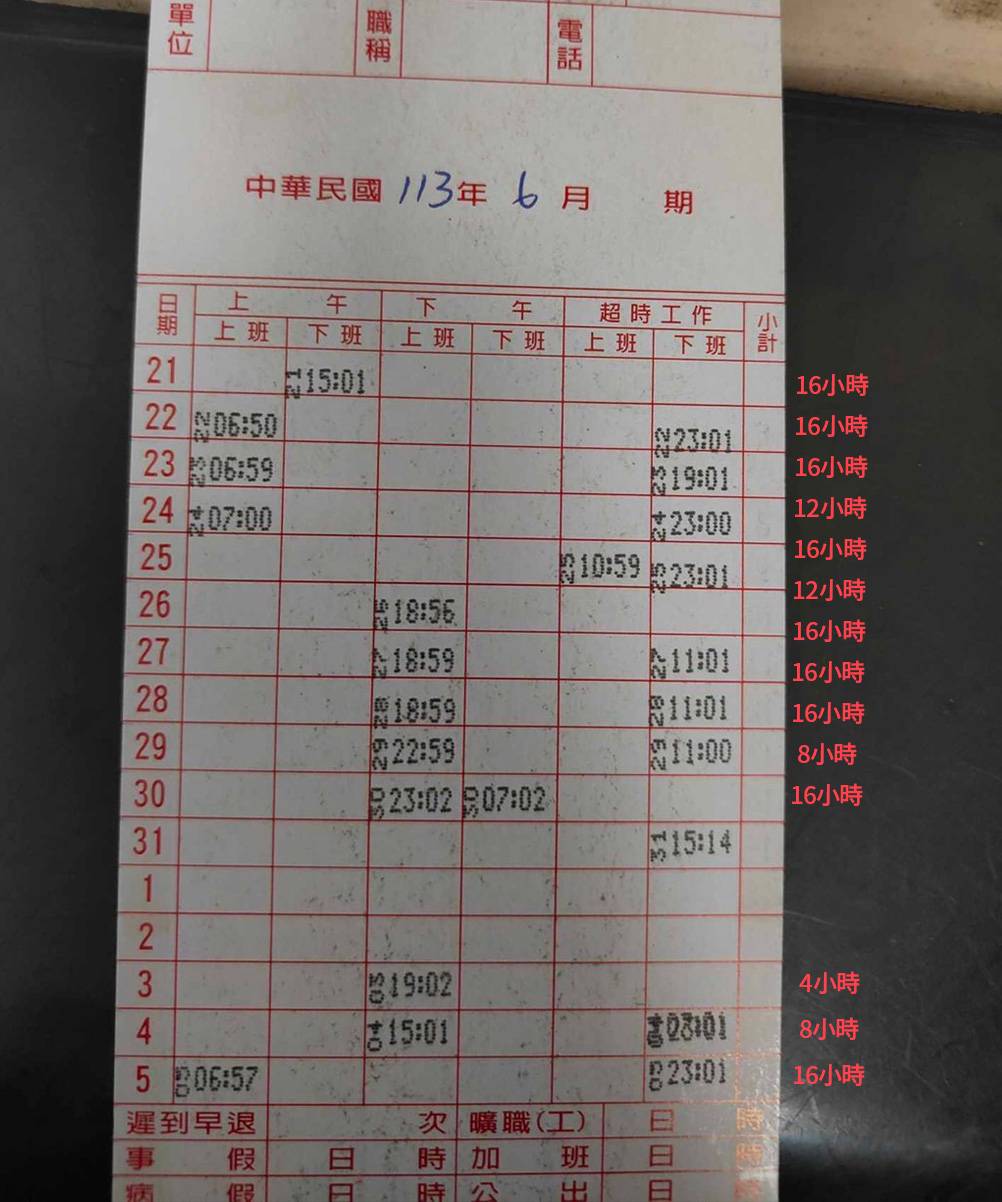 單位 職稱 電話
中華民國 113年 6月 期
日期 上午 下午 超時工作 小計
上班 下班 上班 下班 上班 下班
21 21 15:01 16小時
22 22 06:50 22 23:01 16小時
23 23 06:59 23 19:01 16小時
24 24 07:00 24 23:00 12小時
25 25 10:59 25 23:01 16小時
12小時
26 26 18:56 16小時
27 27 18:59 27 11:01 16小時
28 28 18:59 28 11:01 16小時
29 29 22:59 29 11:00 8小時
30 30 23:02 30 07:02 16小時
31 31 15:14
1
2
3 03 19:02 4小時
4 04 15:01 04 23:01 8小時
5 05 06:57 05 23:01 16小時
遲到早退 次 曠職(工) 日 時
事假 日 時 加班 日 時
病假 日 時 公出 日